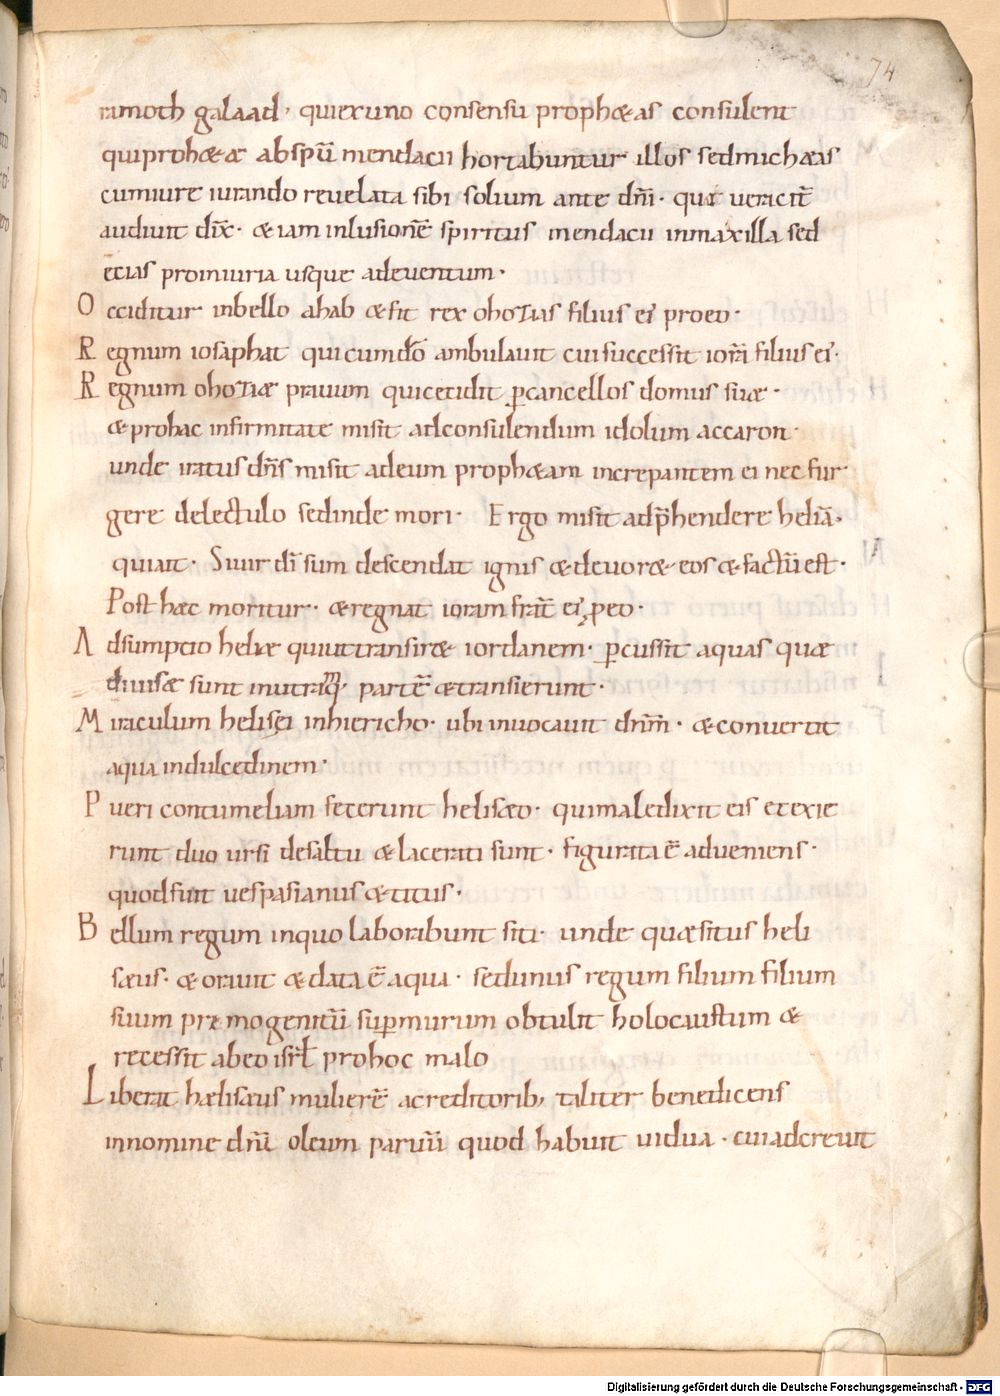 74
ramoth galaad, quiexuno consensu proph&as consulent
quiproh&æ abspū mendacii hortabuntur illos sedmichæas
cumiure iurando reuelata sibi solium ante dn̄i · quæ ueracit̄
audiuit dix̄ · &iam inlusionē spiritus mendacii inmaxilla sed
ecias proiniuria usque adeuentum ·
Occiditur inbello ahab &fit rex ohozias filius ei' proeo ·
Regnum iosaphat quicumdō ambulauit cuisuccessit iorā filius ei' ·
Regnum ohoziæ prauum quicecidit ꝑcancellos domus suæ ·
&prohac infirmitate misit adconsulendum idolum accaron ·
unde iratus dn̄s misit adeum proph&am increpantem ei nec sur
gere delectulo sedinde mori · Ergo misit adp̄hendere heliā ·
quiait · Siuir dī sum descendat ignis &deuor& eos &factū est ·
Post hæc moritur · &regnat ioram frat̄ ei' ꝓeo ·
Adsumptio heliæ quiuttransir& iordanem · ꝑcussit aquas quæ
diuisæ sunt inutramq; partē &transierunt ·
Miraculum helisei inhiericho · ubi inuocauit dn̄m · &conuertit
aqua indulcedinem ·
Pueri contumeliam fecerunt helisæo · quimaledixit eis etexie
runt duo ursi desaltu &lacerati sunt · figurata ē adueniens ·
quodfuit uespasianus &titus ·
Bellum regum inquo laboribunt siti · unde quæsitus heli
sæus · &orauit &data ē aqua · sedunus regum filium filium
suum primogenitū suꝑmurum obtulit holocaustum &
recessit abeo isrł prohoc malo
Liberat hælisæus mulierē acreditorib; taliter benedicens
innomine dn̄i oleum paruū quod habuit uidua · cuiadcreuit
Digitalisierung gefördert durch die Deutsche Forschungsgemeinschaft - DFG